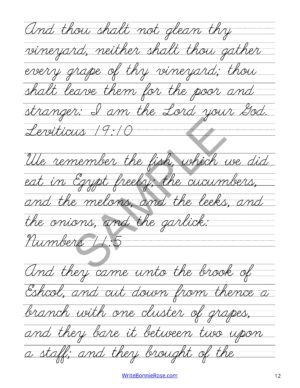 And thou shalt not glean thy
vineyard, neither shalt thou gather
every grape of thy vineyard; thou
shalt leave them for the poor and
stranger: I am the Lord your God.
Leviticus 19:10
We remember the fish, which we did
eat in Egypt freely; the cucumbers,
and the melons, and the leeks, and
the onions, and the garlick:
Numbers 11:5
And they came unto the brook of
Eshcol, and cut down from thence a
branch with one cluster of grapes,
and they bare it between two upon
a staff; and they brought of the
SAMPLE
WriteBonnieRose.com
12